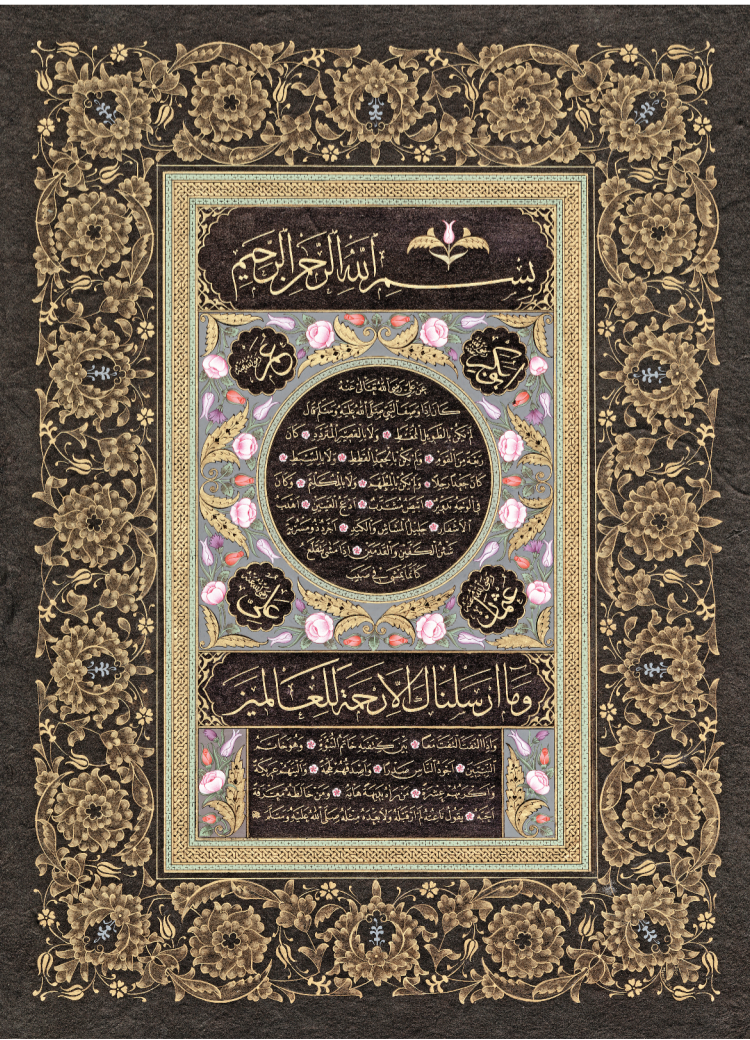 بسم الله الرحمن الرحيم
أبو بكر
عمر
عن علي رضي الله تعالى عنه
كان اذا وصف النبي صلى الله عليه وسلم قال
لم يكن بالطويل الممغط ولا بالقصير المتردد كان
ربعة من القوم ولم يكن بالجعد القطط ولا بالسبط
كان جعدا رجلا ولم يكن بالمطهم ولا بالمكلثم وكان
في الوجه تدوير ابيض مشرب ادعج العينين اهدب
الاشفار جليل المشاش والكتد اجرد ذو مسربة
شثن الكفين والقدمين اذا مشى يتقلع
كأنما يمشي في صبب
عثمان
علي
وما ارسلناك الا رحمة للعالمين
واذا التفت التفت معا بين كتفيه خاتم النبوة وهو خاتم
النبيين اجود الناس صدرا واصدقهم لهجة والينهم عريكة
واكرمهم عشرة من رآه بديهة هابه ومن خالطه معرفة
احبه يقول ناعته لم ار قبله ولا بعده مثله صلى الله عليه وسلم